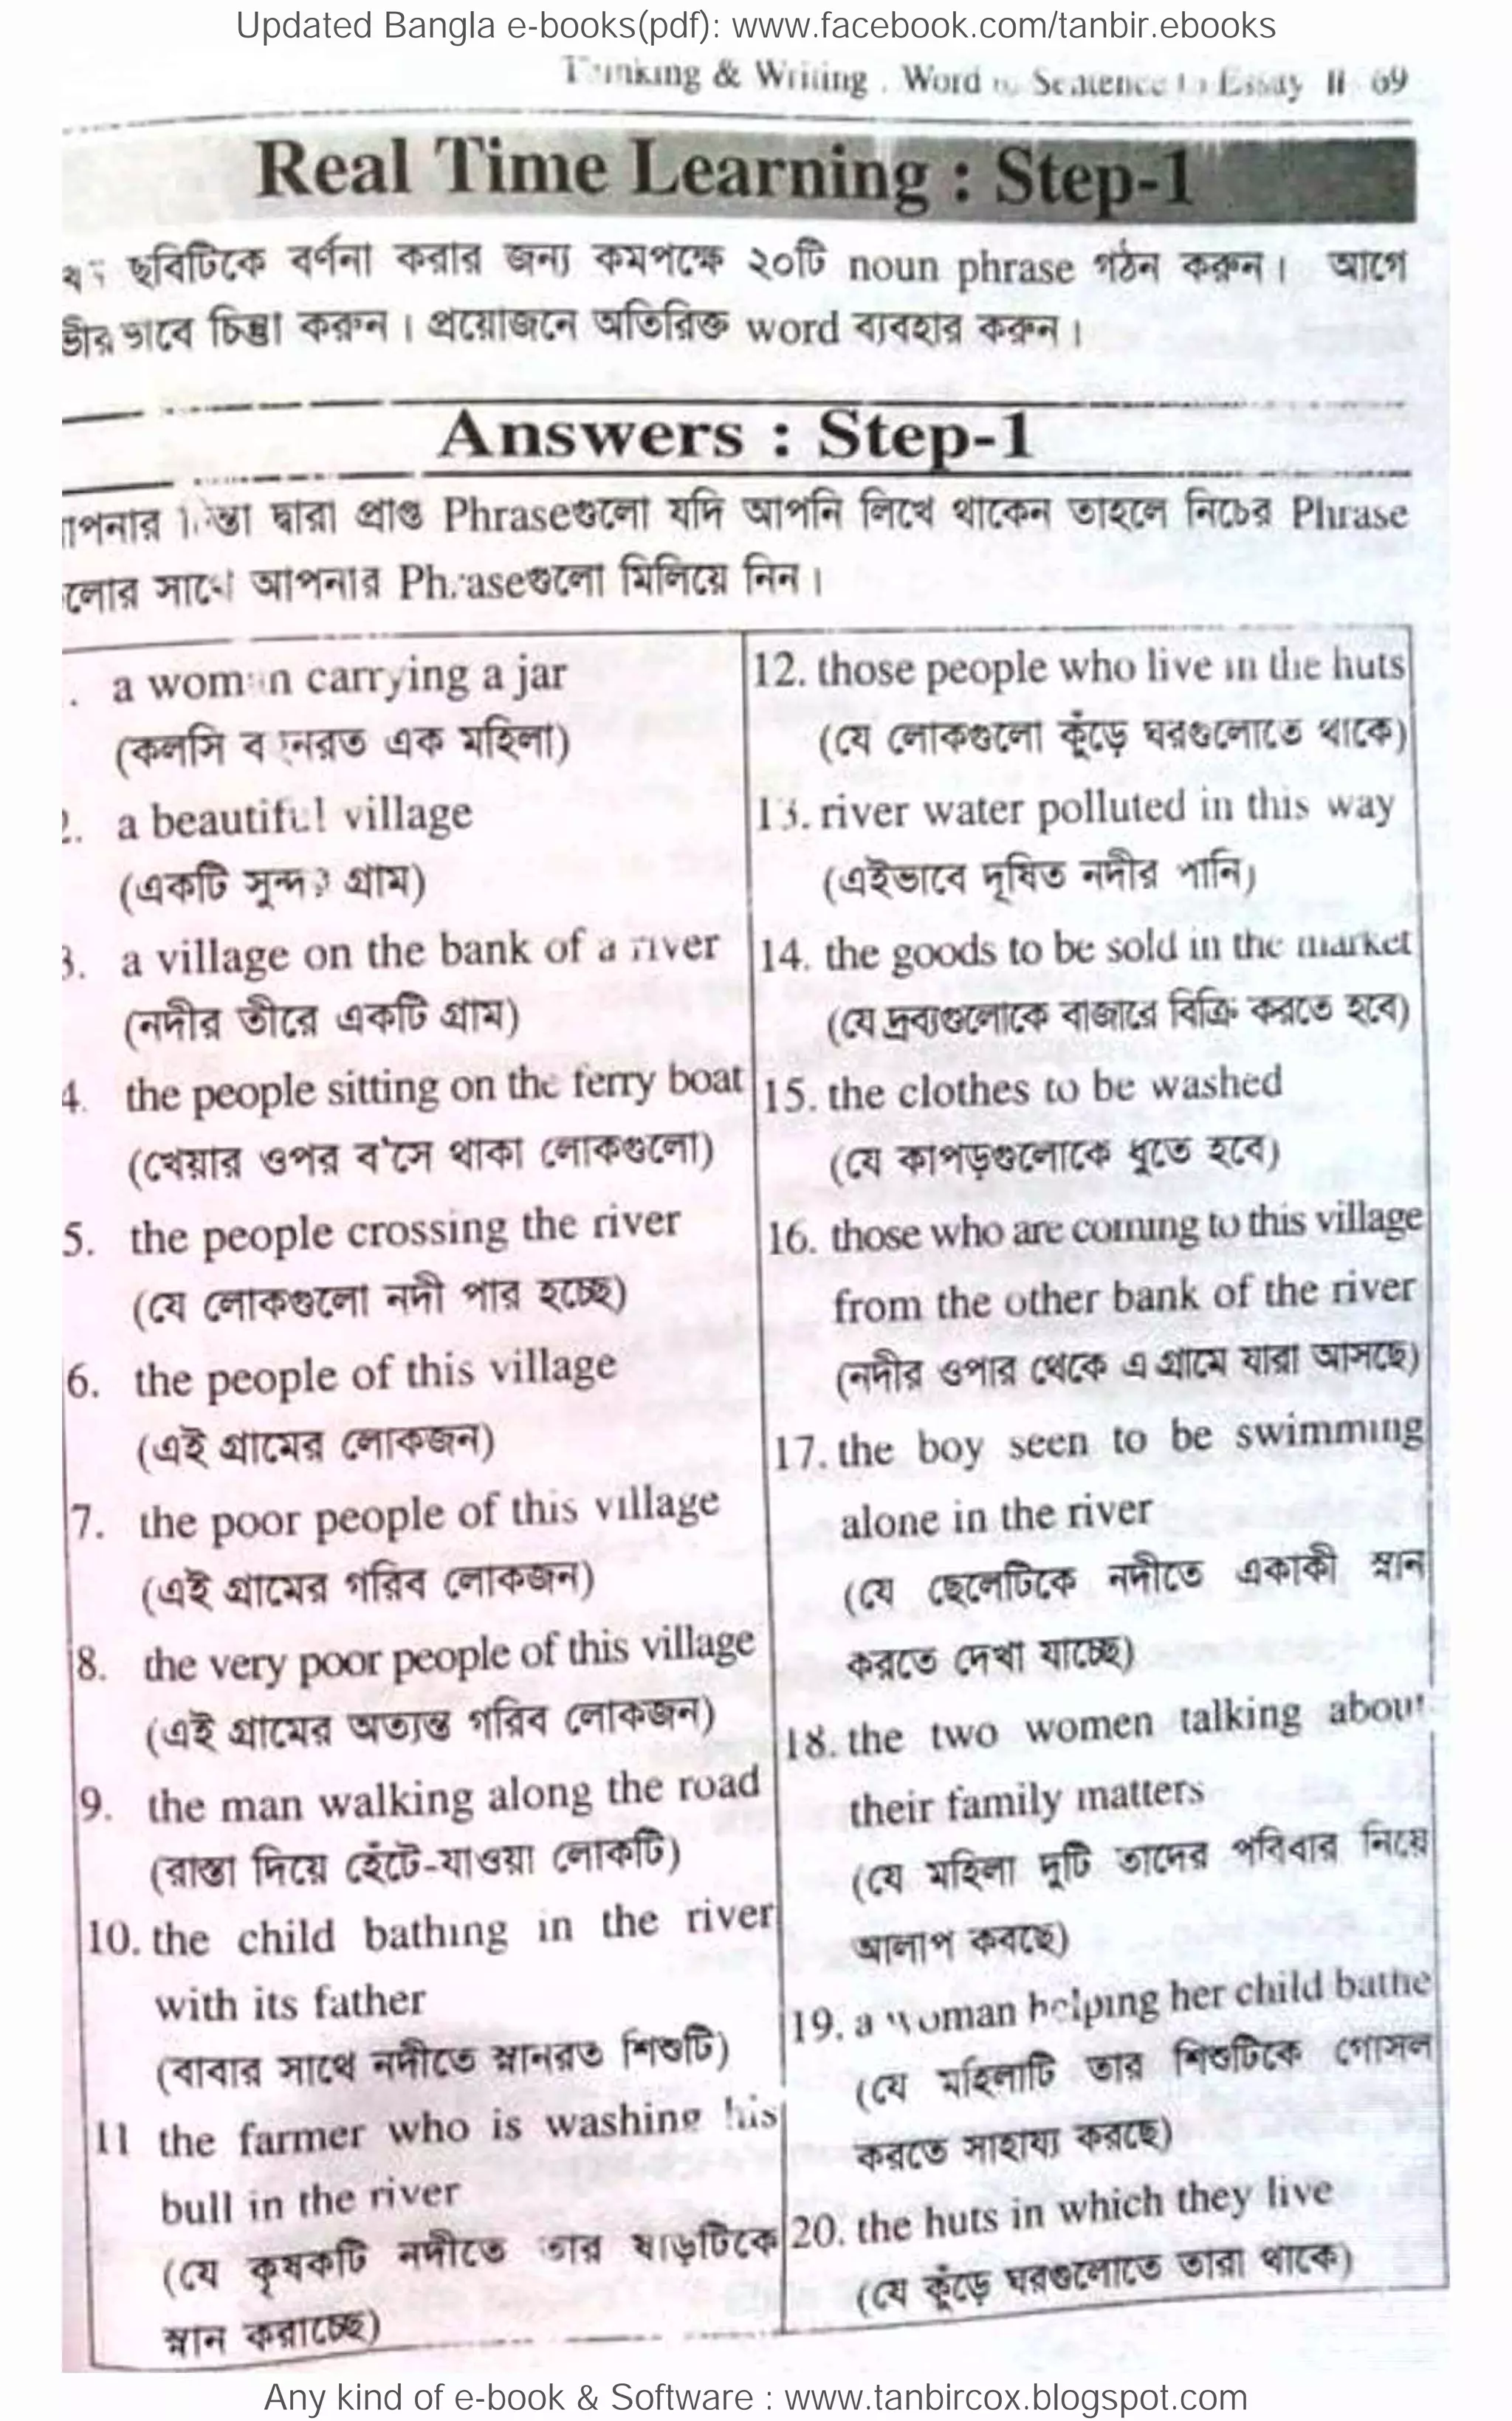 Updated Bangla e-books(pdf): www.facebook.com/tanbir.ebooks
Thinking & Writing . Word to Sentence to Essay II 69
Real Time Learning : Step-1
ছবিটিকে বর্ণনা করার জন্য কমপক্ষে ২০টি noun phrase গঠন করুন। আগে
ভীর ভাবে চিন্তা করুন। প্রয়োজনে অতিরিক্ত word ব্যবহার করুন।
Answers : Step-1
পনার চিন্তা দ্বারা প্রাপ্ত Phraseগুলো যদি আপনি লিখে থাকেন তাহলে নিচের Phrase
লোর সাথে আপনার Phraseগুলো মিলিয়ে নিন।
. a woman carrying a jar
(কলসি বহনরত এক মহিলা)
2. a beautiful village
(একটি সুন্দর গ্রাম)
3. a village on the bank of a river
(নদীর তীরে একটি গ্রাম)
4. the people sitting on the ferry boat
(খেয়ার ওপর ব'সে থাকা লোকগুলো)
5. the people crossing the river
(যে লোকগুলো নদী পার হচ্ছে)
6. the people of this village
(এই গ্রামের লোকজন)
7. the poor people of this village
(এই গ্রামের গরিব লোকজন)
8. the very poor people of this village
(এই গ্রামের অত্যন্ত গরিব লোকজন)
9. the man walking along the road
(রাস্তা দিয়ে হেঁটে-যাওয়া লোকটি)
10. the child bathing in the river
with its father
(বাবার সাথে নদীতে স্নানরত শিশুটি)
11 the farmer who is washing his
bull in the river
(যে কৃষকটি নদীতে তার ষাড়টিকে
স্নান করাচ্ছে)
12. those people who live in the huts
(যে লোকগুলো কুঁড়ে ঘরগুলোতে থাকে)
13. river water polluted in this way
(এইভাবে দূষিত নদীর পানি)
14. the goods to be sold in the market
(যে দ্রব্যগুলোকে বাজারে বিক্রি করতে হবে)
15. the clothes to be washed
(যে কাপড়গুলোকে ধুতে হবে)
16. those who are coming to this village
from the other bank of the river
(নদীর ওপার থেকে এ গ্রামে যারা আসছে)
17. the boy seen to be swimming
alone in the river
(যে ছেলেটিকে নদীতে একাকী স্নান
করতে দেখা যাচ্ছে)
18. the two women talking about
their family matters
(যে মহিলা দুটি তাদের পরিবার নিয়ে
আলাপ করছে)
19. a woman helping her child bathe
(যে মহিলাটি তার শিশুটিকে গোসল
করতে সাহায্য করছে)
20. the huts in which they live
(যে কুঁড়ে ঘরগুলোতে তারা থাকে)
Any kind of e-book & Software : www.tanbircox.blogspot.com